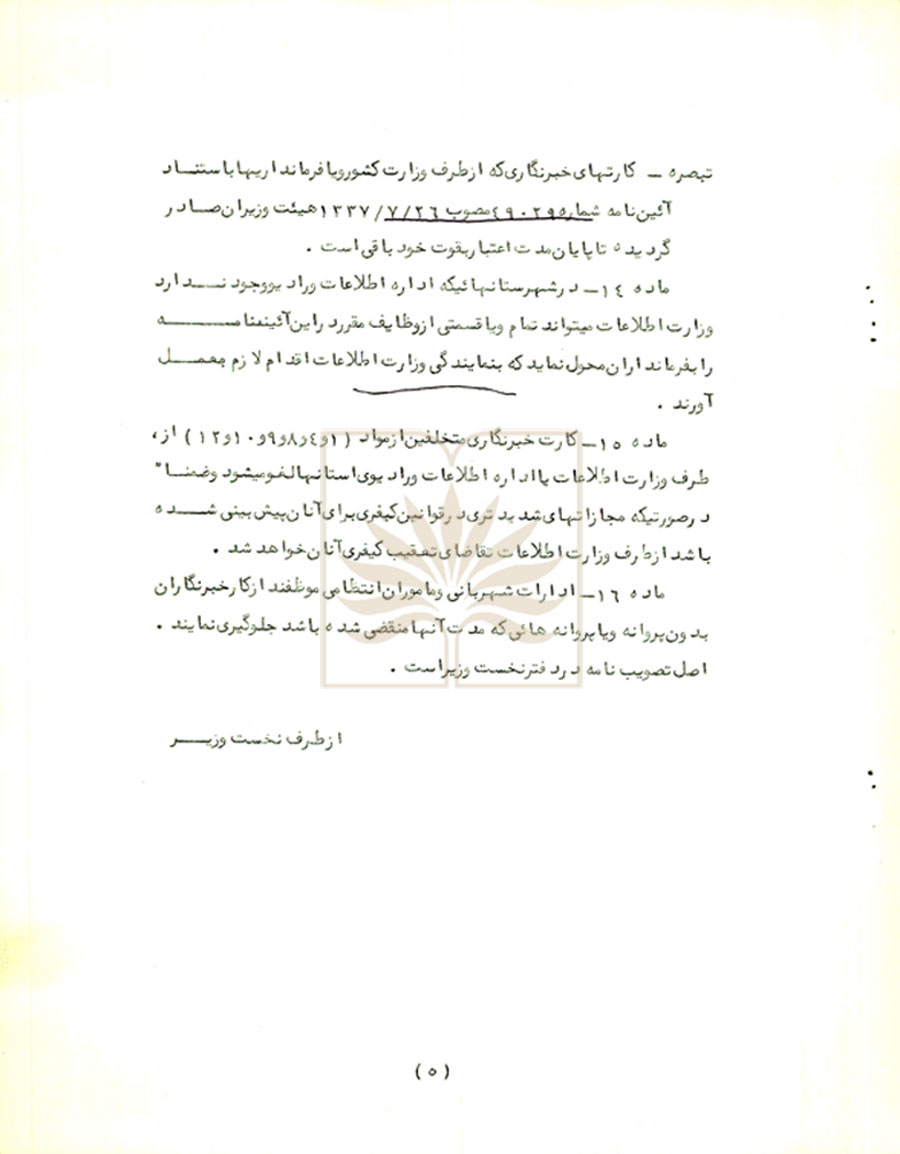 تبصره ــ کارتهای خبرنگاری که از طرف وزارت کشور ویا فرمانداریها باستنـــاد
آئین نامه شماره ٤٩٠٢٩٥ مصوب ١٣٣٧/٧/٢٦ هیئت وزیران صادر
گردیده تا پایان مدت اعتبار بقوت خود باقی است .
ماده ١٤ــ در شهرستانهائیکه اداره اطلاعات و رادیو وجود نــدارد
وزارت اطلاعات میتواند تمام ویا قسمتی از وظایف مقرر در این آئیننامــه
را بفرمانداران محول نماید که بنمایندگی وزارت اطلاعات اقدام لازم بعمــل
آورند .
ماده ١٥ــ کارت خبرنگاری متخلفین از مواد (١و٤و٨و٩و١٠و١٢) از،
طرف وزارت اطلاعات یا اداره اطلاعات و رادیوی استانها لغو میشود وضمنـا"
در صورتیکه مجازاتهای شدیدتری در قوانین کیفری برای آنان پیش بینی شـــده
باشد از طرف وزارت اطلاعات تقاضای تعقیب کیفری آنان خواهد شد .
ماده ١٦ــ ادارات شهربانی ومامورانانتظامی موظفند از کار خبرنگاران
بدون پروانه ویا پروانه هائی که مدت آنها منقضی شده باشد جلوگیری نمایند .
اصل تصویب نامه در دفتر نخست وزیر است .
از طرف نخست وزیـــر
(٥)